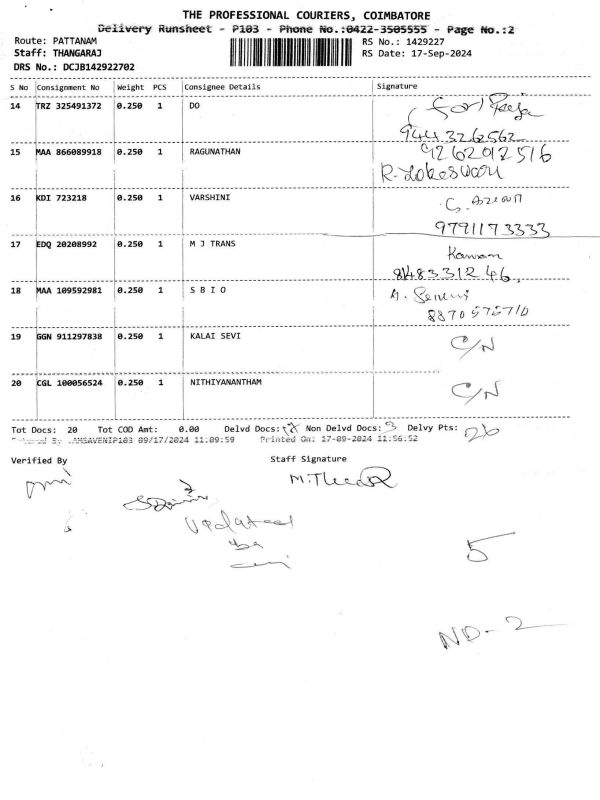 THE PROFESSIONAL COURIERS, COIMBATORE
Delivery Runsheet - P103 - Phone No.:0422-3505555 - Page No.:2
Route: PATTANAM RS No.: 1429227
Staff: THANGARAJ RS Date: 17-Sep-2024
DRS No.: DCJB142922702
S No Consignment No Weight PCS Consignee Details Signature
14 TRZ 325491372 0.250 1 DO
9443262562
15 MAA 866089918 0.250 1 RAGUNATHAN 9262012516
R. Lokeswari
16 KDI 723218 0.250 1 VARSHINI
9791173333
17 EDQ 20208992 0.250 1 M J TRANS Kannan
8148331246
18 MAA 109592981 0.250 1 S B I O
19 GGN 911297838 0.250 1 KALAI SEVI C/N
20 CGL 100056524 0.250 1 NITHIYANANTHAM C/N
Tot Docs: 20 Tot COD Amt: 0.00 Delvd Docs: Non Delvd Docs: 3 Delvy Pts: 26
By 09/17/2024 11:09:59 Printed On: 17-09-2024 11:56:52
Verified By Staff Signature
Updated
by
5
ND-2